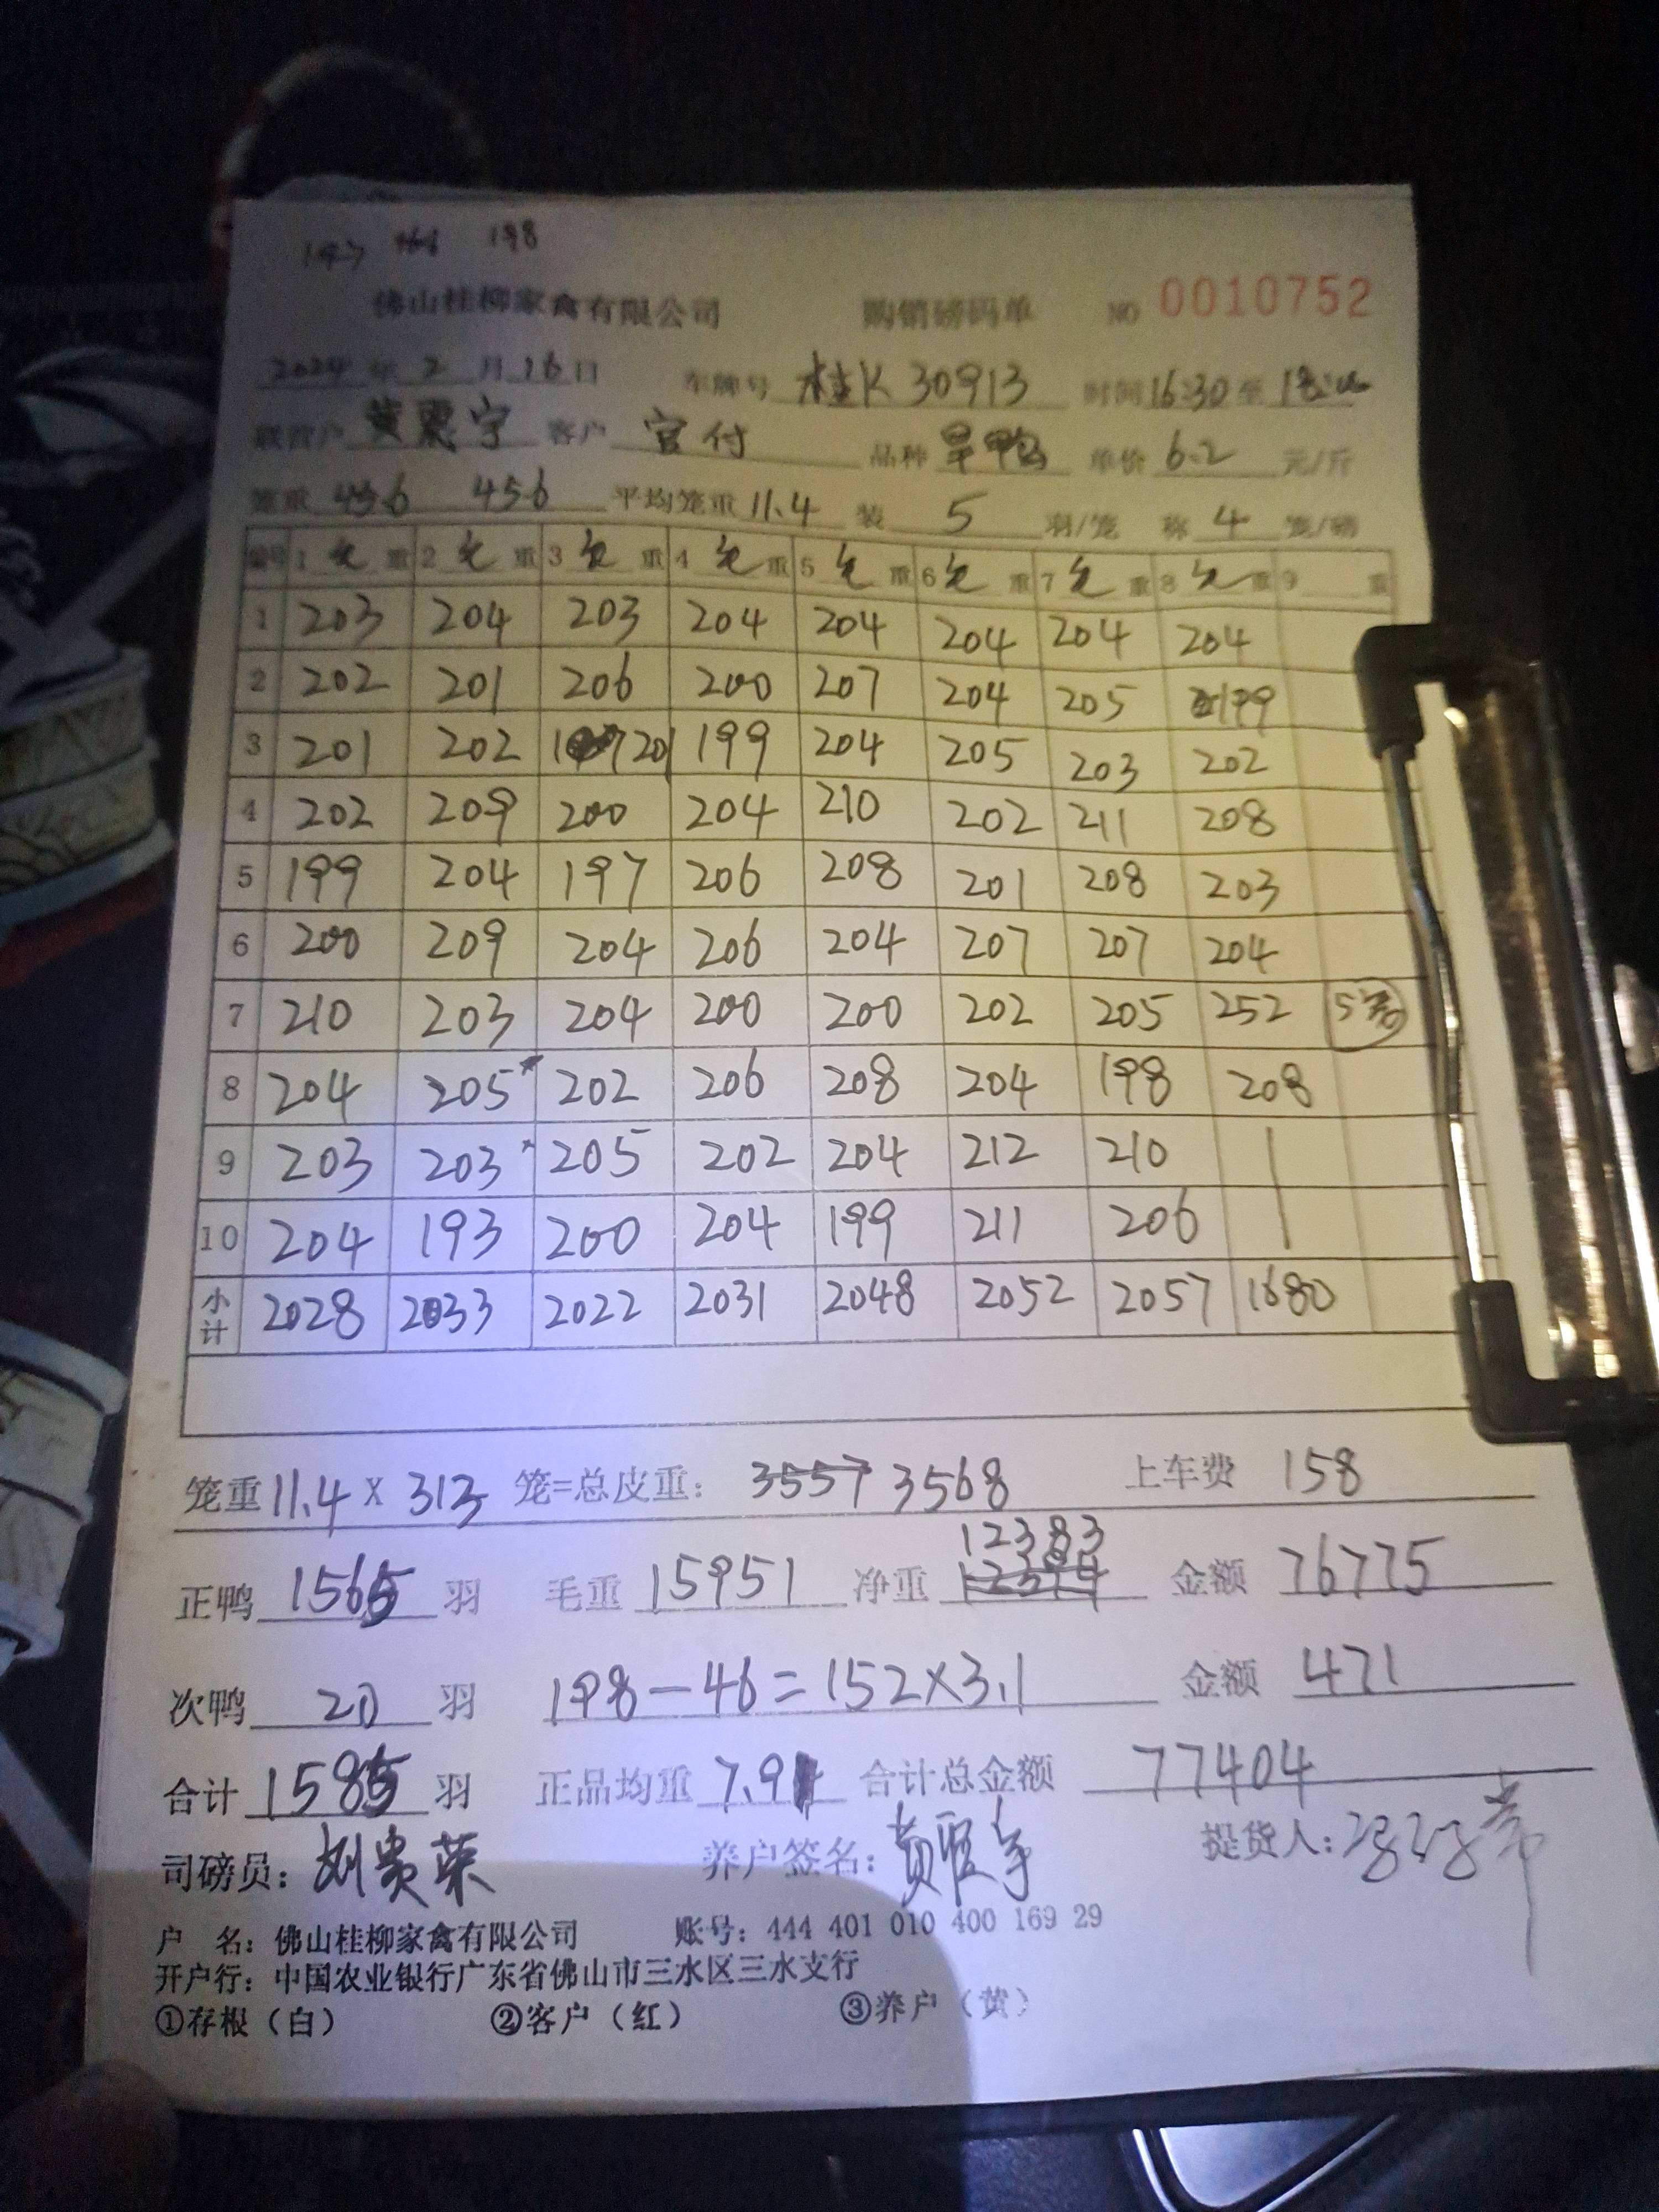 198
佛山桂柳家禽有限公司 购销磅码单 NO 0010752
2024 年 2 月 16 日 车牌号 桂K 30913 时间 16:30 至
联营户 黄 宇 客户 官付 品种 旱鸭 单价 6.2 元/斤
笼重 456 平均笼重 11.4 装 5 羽/笼 称 4 笼/磅
编号 1 重 2 重 3 重 4 重 5 重 6 重 7 重 8 重 9 重
1 203 204 203 204 204 204 204 204
2 202 201 206 200 207 204 205 199
3 201 202 201 199 204 205 203 202
4 202 209 200 204 210 202 211 208
5 199 204 197 206 208 201 208 203
6 200 209 204 206 204 207 207 204
7 210 203 204 200 200 202 205 252 5笼
8 204 205 202 206 208 204 198 208
9 203 203 205 202 204 212 210
10 204 193 200 204 199 211 206
小计 2028 2033 2022 2031 2048 2052 2057 1680
笼重 11.4 X 313 笼=总皮重: 3557 3568 上车费 158
12383
正鸭 1565 羽 毛重 15951 净重 12394 金额 76775
次鸭 20 羽 198-46=152×3.1 金额 471
合计 1585 羽 正品均重 7.91 合计总金额 77404
司磅员: 刘贵荣 养户签名: 提货人:
户 名: 佛山桂柳家禽有限公司 账号: 444 401 010 400 169 29
开户行: 中国农业银行广东省佛山市三水区三水支行
①存根（白） ②客户（红） ③养户（黄）